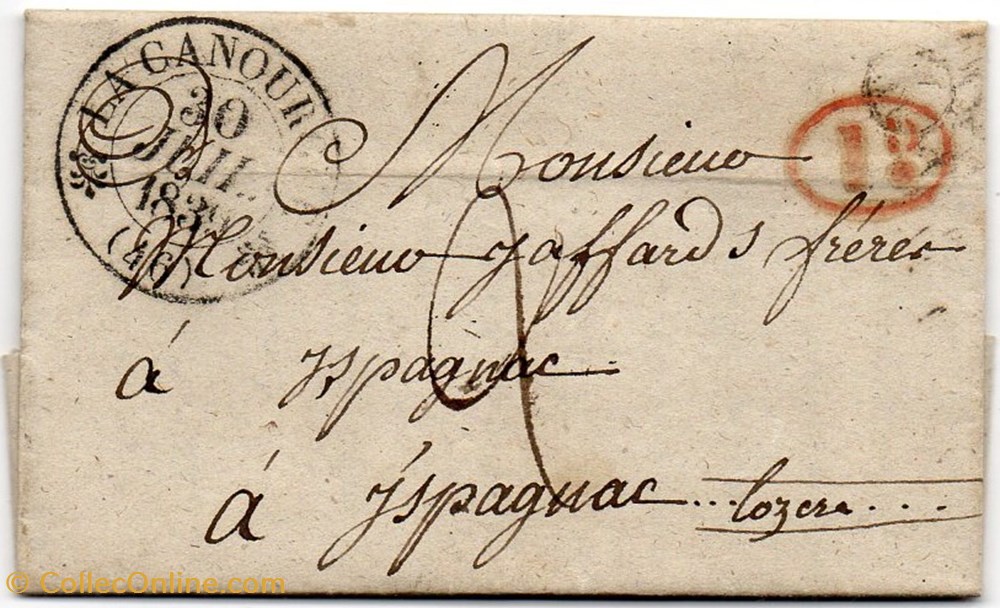 LA CANOURGUE
30
JUIL.
1839
(46)
1D
Monsieur
Monsieur Jaffards frères
2
à Ispagnac
à Ispagnac lozere
© CollecOnline.com